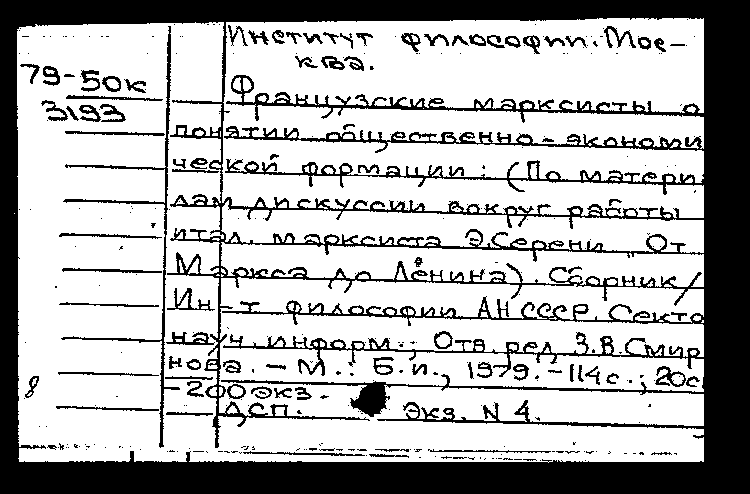 Институт философии. Мос-
ква.
79-50к
3193
Французские марксисты о
понятии общественно-экономи
ческой формации: (По матери
лам дискуссии вокруг работы
итал. марксиста Э.Серени „От
Маркса до Ленина). Сборник/
Ин-т философии АН СССР. Секто
науч. информ.; Отв. ред. З.В.Смир
нова. - М.: Б.и., 1979. - 114с.; 20с
- 200 экз.
8
ДСП. Экз. N 4.